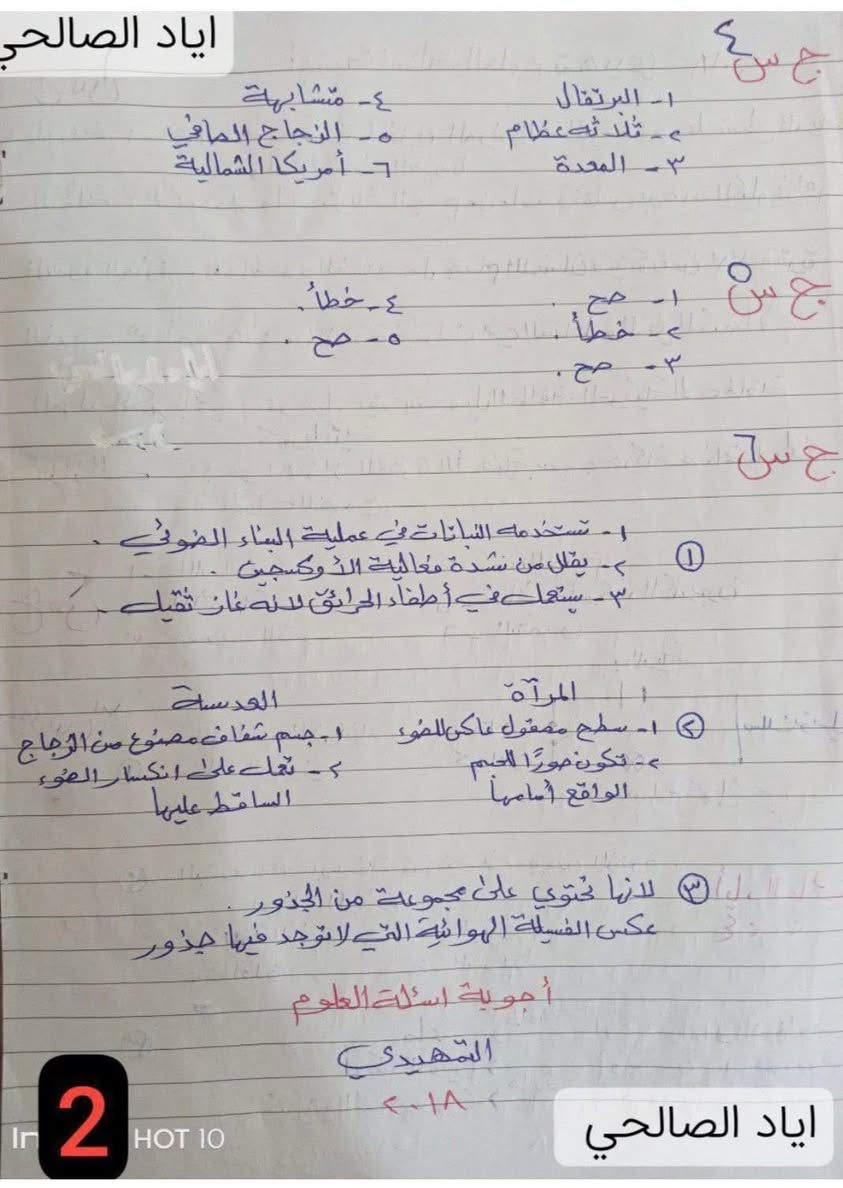 اياد الصالحي
ج س٤
١- البرتقال
٢- ثلاثة عظام
٣- المعدة
٤- متشابهة
٥- الزجاج الصافي
٦- أمريكا الشمالية
ج س٥
١- صح .
٢- خطأ .
٣- صح .
٤- خطأ .
٥- صح .
ج س٦
① ١- تستخدمه النباتات في عملية البناء الضوئي .
٢- يقلل من شدة فعالية الأوكسجين .
٣- يستعمل في أطفاء الحرائق لانه غاز ثقيل .
② المرآة
١- سطح مصقول عاكس للضوء
٢- تكون صورًا للجسم
الواقع أمامها
العدسة
١- جسم شفاف مصنوع من الزجاج
٢- تعمل على انكسار الضوء
الساقط عليها
③ لانها تحتوي على مجموعة من الجذور .
عكس الفسيلة الهوائية التي لا توجد فيها جذور
أجوبة اسئلة العلوم
التمهيدي
٢٠١٨
اياد الصالحي
2
HOT 10